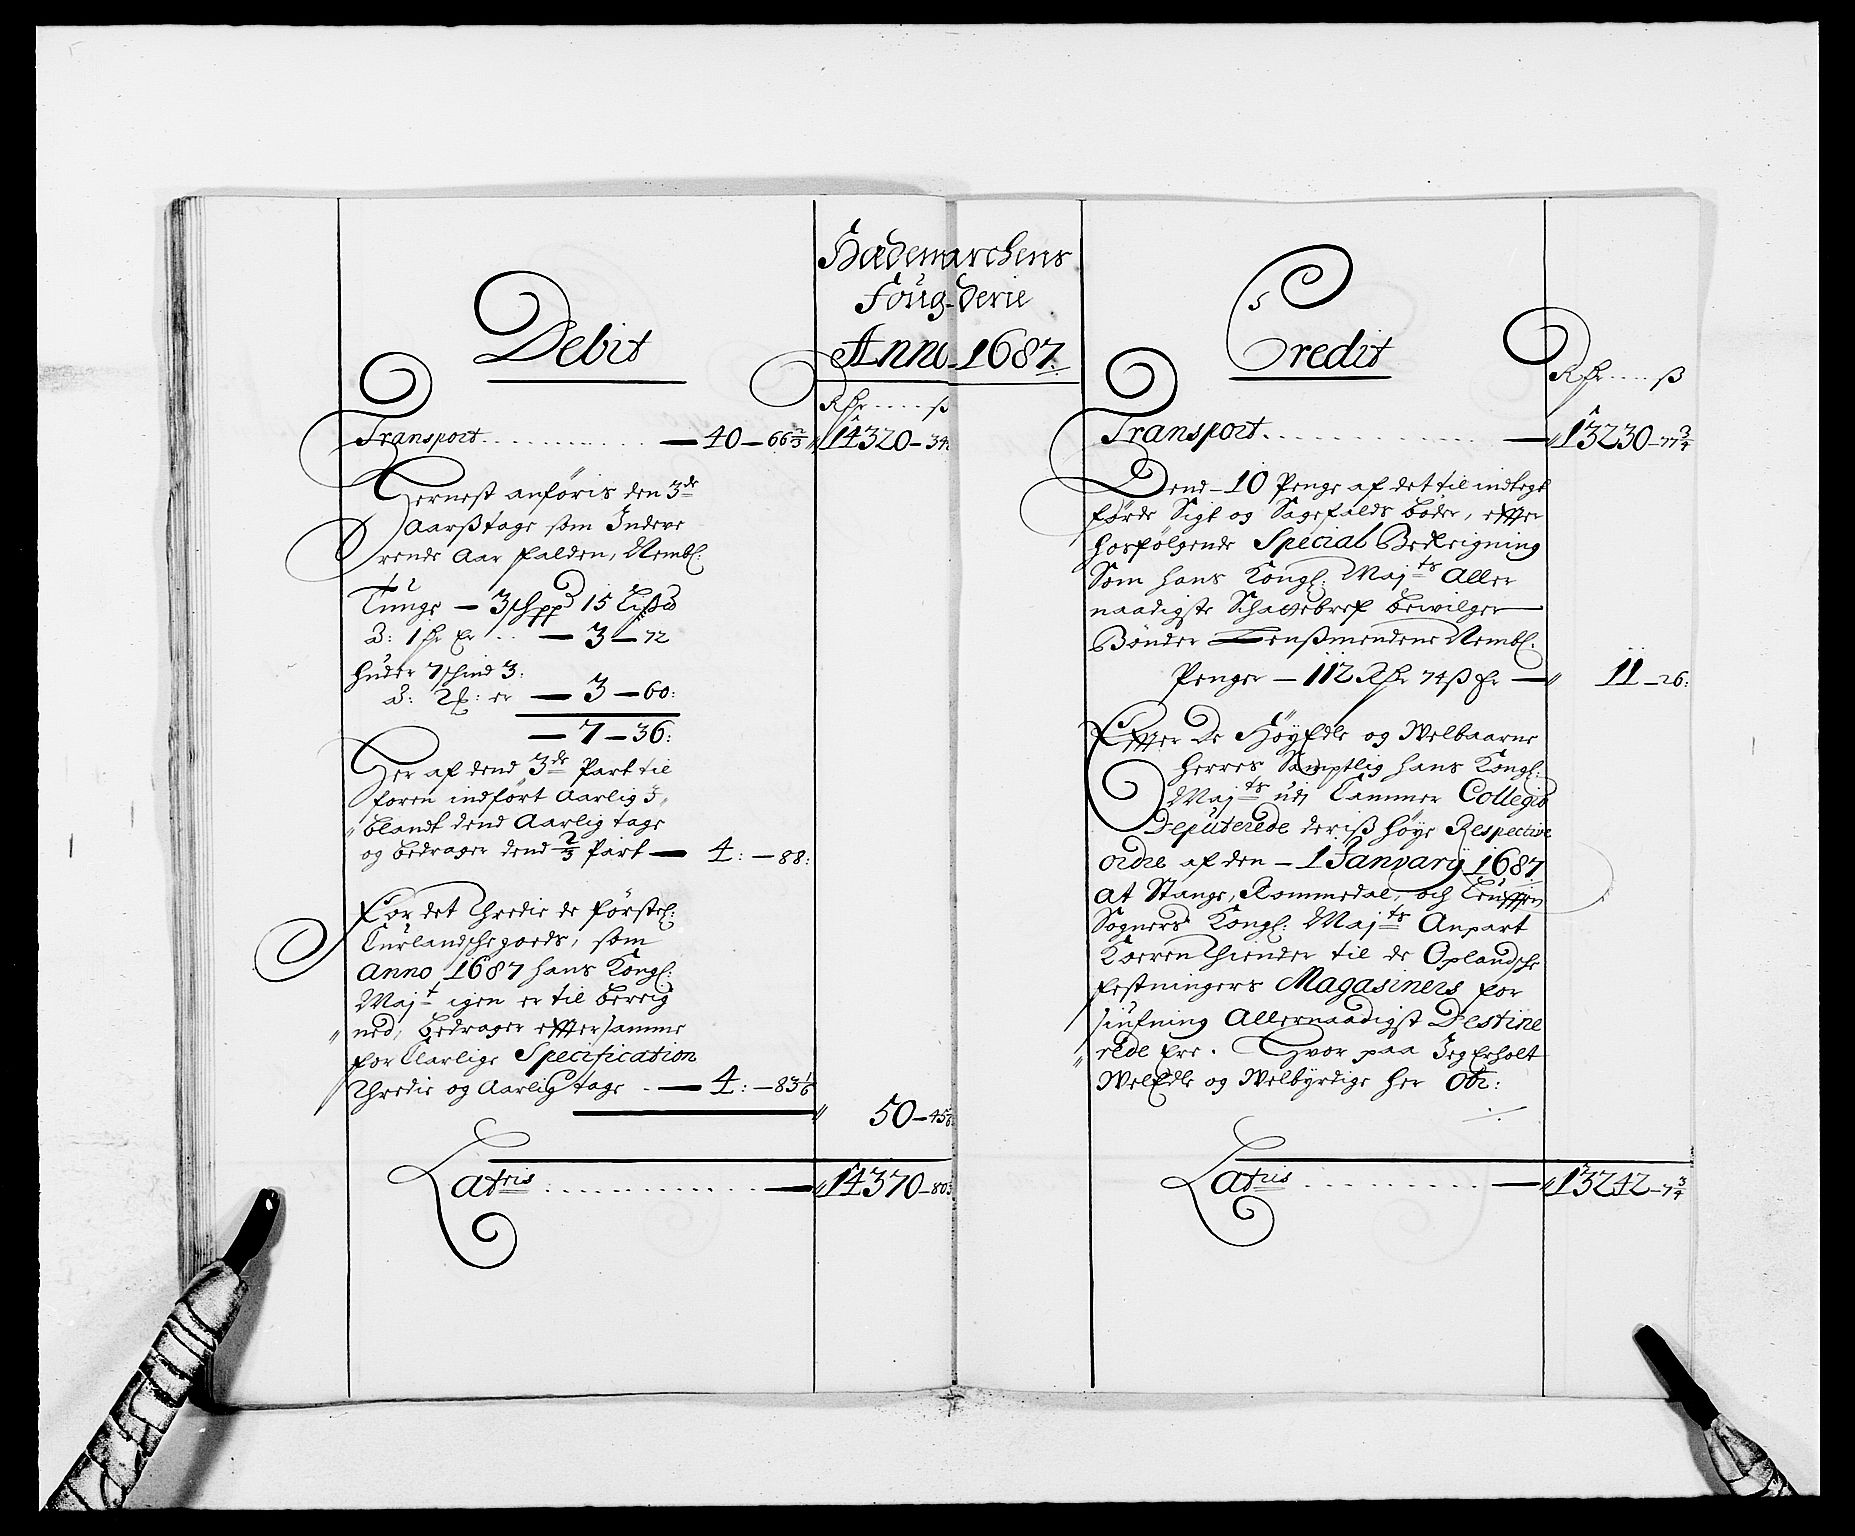 Hædemarchens
Fougderie
Anno 1687.
Debit
Rdr ..... ß
Transport ......... — 40 – 66 2/3 „ 14320 – 34
Fernest anföris den 3de
Aarßtage som Indeve
rende Aar falden, Nembl:
Tunge — 3 schpd 15 Lispd
à: 1 Rdr er ... — 3 – 72
Huder 7 schind 3:
à: er — 3 – 60:
— 7 – 36:
Her af dend 3de Part til
foren indfört Aarlig
blandt dend Aarlig tage
og bedrager dend 2/3 Part — 4: – 88:
For det Thredie de förstel:
Curlandsche goeds, som
Anno 1687 hans Kongl:
Majt igen er til bereig
ned, bedrager effter samme
for Clarlige Specification
Thredie og Aarlig tage — 4: – 83 1/6
„ 50 – 45
Latris .......... — „ 14370 – 80
Credit
Rdr ..... ß
Transport ............ — „ 13230 – 77 3/4
Dend 10 Penge af det til indtegt
förde Sigt og Sagefalds böder, effter
hosfölgende Special Bereigning
Som hans Kongl: Majts Aller
naadigste Schattebref bewilger
Bönder Lensmendene Nembl:
Penger – 112 Rdr 74 ß er — „ 11 – 26:
Effter De HöyEdle og Welbaarne
Herres Samptlig hans Kongl:
Majts udj Cammer Collegio
Deputerede deriß höye Respective
ordre af den – 1 January 1687
at Stange, Rommedal, och Leuten
Sogners Kongl: Majts Anpart
Koeren Thiender til de Oplandsche
festningers Magasiners for
siufning Allernaadigst Destine
rede ere. Hvor paa Jeg Erholt
WelEdle og Welbyrdige Her Obr:
Latris .......... — „ 13242 – 7 3/4